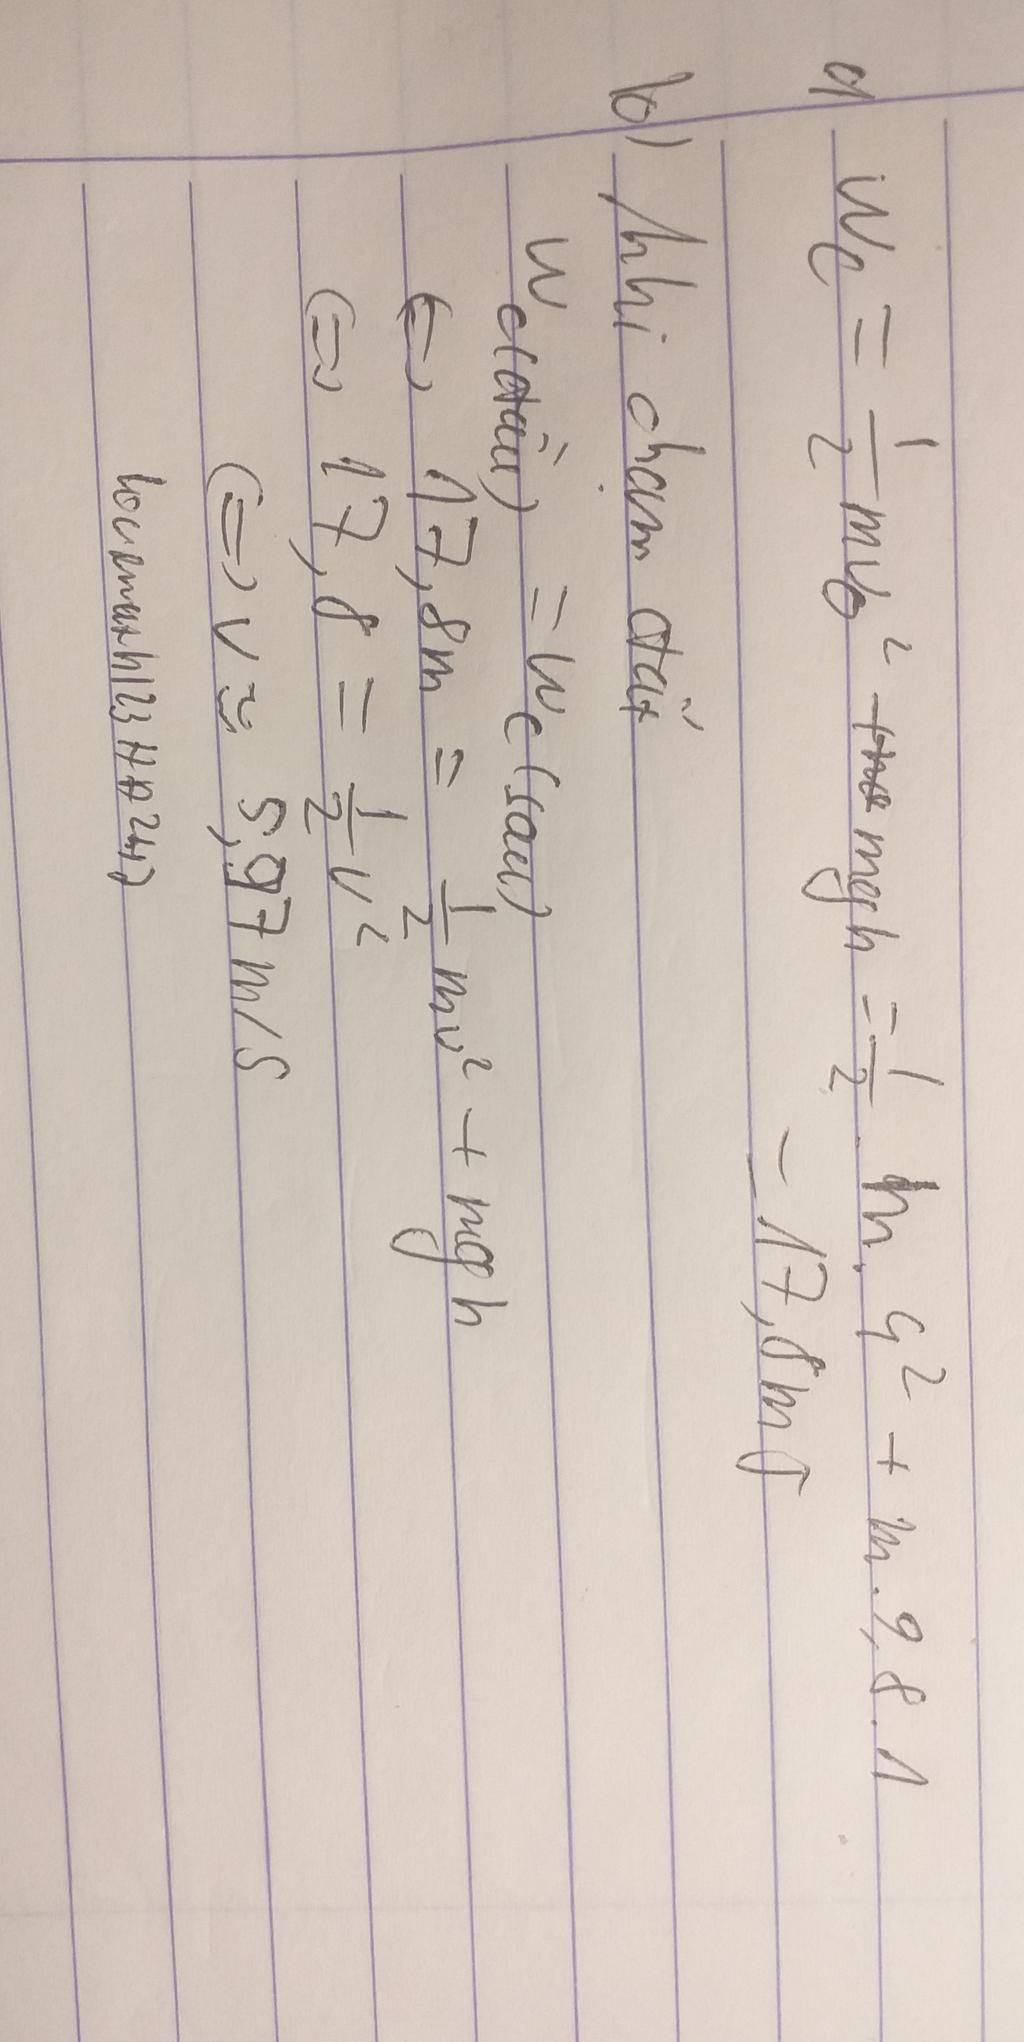 a) Wc = 1/2 mv0² + mgh = 1/2 . m. 4² + m. 9,8. 1
= 17,8m J
b) khi chạm đất
Wc(đầu) = Wc(sau)
<=> 17,8m = 1/2 mv² + mgh
<=> 17,8 = 1/2 v²
<=> v ≈ 5,97 m/s